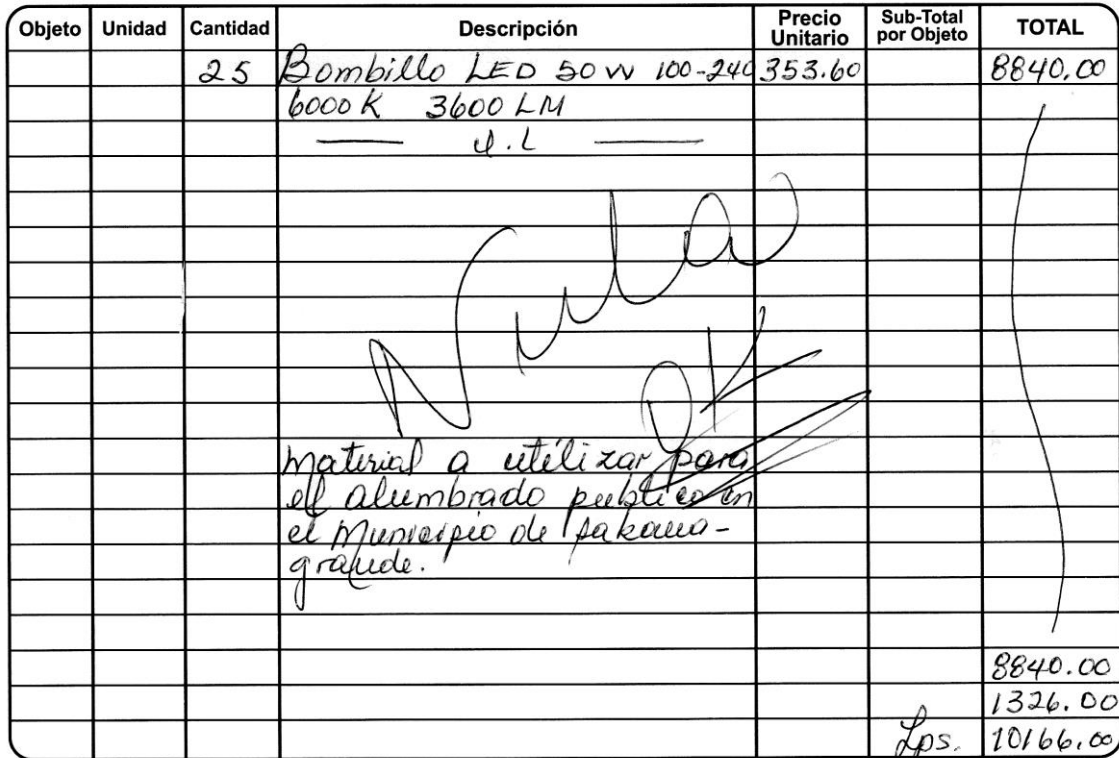 Objeto Unidad Cantidad Descripción Precio Unitario Sub-Total por Objeto TOTAL
25 Bombillo LED 50 W 100-240 353.60 8840.00
6000 K 3600 LM
Nulo
OK
Material a utilizar para
el alumbrado publico en
el Municipio de
grande.
8840.00
1326.00
Lps. 10166.00